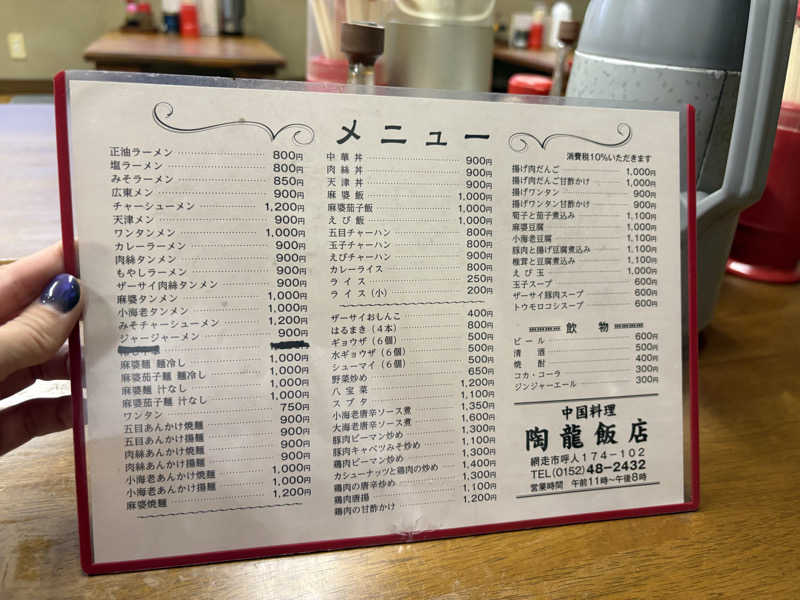 メニュー
正油ラーメン 800円
塩ラーメン 800円
みそラーメン 850円
広東メン 900円
チャーシューメン 1,200円
天津メン 900円
ワンタンメン 1,000円
カレーラーメン 900円
肉絲タンメン 900円
もやしラーメン 900円
ザーサイ肉絲タンメン 900円
麻婆タンメン 1,000円
小海老タンメン 1,000円
みそチャーシューメン 1,200円
ジャージャーメン 900円
麻婆麺 麺冷し 1,000円
麻婆茄子麺 麺冷し 1,000円
麻婆麺 汁なし 1,000円
麻婆茄子麺 汁なし 1,000円
ワンタン 750円
五目あんかけ焼麺 900円
五目あんかけ揚麺 900円
肉絲あんかけ焼麺 900円
肉絲あんかけ揚麺 900円
小海老あんかけ焼麺 1,000円
小海老あんかけ揚麺 1,000円
麻婆焼麺 1,200円
中華丼 900円
肉絲丼 900円
天津丼 900円
麻婆飯 1,000円
麻婆茄子飯 1,000円
えび飯 1,000円
五目チャーハン 800円
玉子チャーハン 800円
えびチャーハン 900円
カレーライス 800円
ライス 250円
ライス(小) 200円
ザーサイおしんこ 400円
はるまき(4本) 800円
ギョウザ(6個) 500円
水ギョウザ(6個) 500円
シューマイ(6個) 500円
野菜炒め 650円
八宝菜 1,200円
スブタ 1,100円
小海老唐辛ソース煮 1,350円
大海老唐辛ソース煮 1,600円
豚肉ピーマン炒め 1,100円
豚肉キャベツみそ炒め 1,300円
鶏肉ピーマン炒め 1,100円
カシューナッツと鶏肉の炒め 1,400円
鶏肉の唐辛炒め 1,300円
鶏肉唐揚 1,100円
鶏肉の甘酢かけ 1,200円
消費税10%いただきます
揚げ肉だんご 1,000円
揚げ肉だんご甘酢かけ 1,000円
揚げワンタン 900円
揚げワンタン甘酢かけ 1,000円
筍子と茄子煮込み 1,100円
麻婆豆腐 1,000円
小海老豆腐 1,100円
豚肉と揚げ豆腐煮込み 1,100円
椎茸と豆腐煮込み 1,100円
えび玉 1,000円
玉子スープ 600円
ザーサイ豚肉スープ 600円
トウモロコシスープ 600円
飲物
ビール 600円
清酒 500円
焼酎 400円
コカ・コーラ 300円
ジンジャーエール 300円
中国料理
陶龍飯店
網走市呼人174-102
TEL(0152)48-2432
営業時間 午前11時〜午後8時